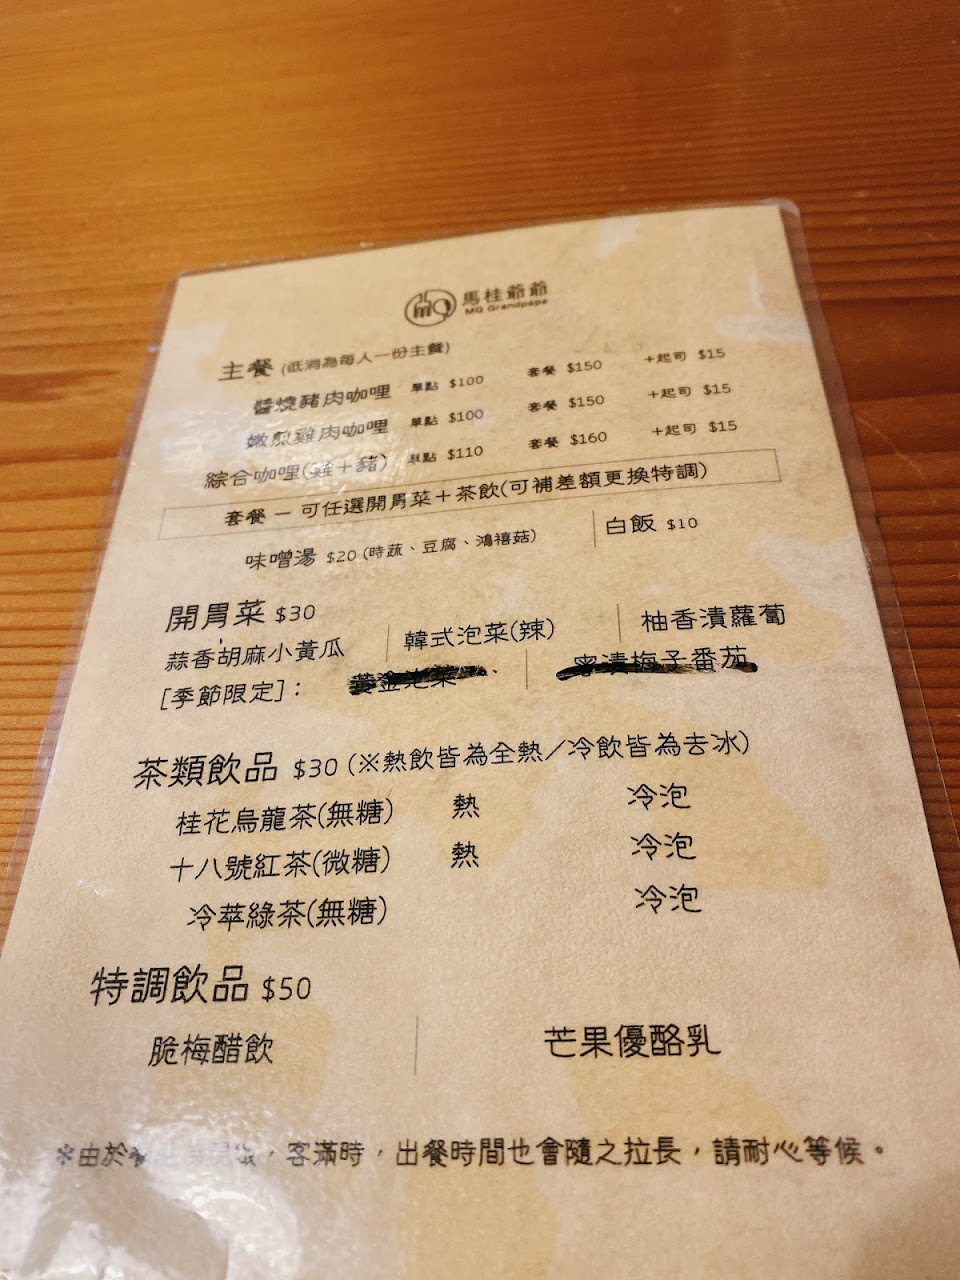 mQ 馬桂爺爺
MQ Grandpapa
主餐 (低消為每人一份主餐)
醬燒豬肉咖哩 單點 $100 套餐 $150 +起司 $15
嫩煎雞肉咖哩 單點 $100 套餐 $150 +起司 $15
綜合咖哩(雞+豬) 單點 $110 套餐 $160 +起司 $15
套餐 — 可任選開胃菜+茶飲(可補差額更換特調)
味噌湯 $20 (時蔬、豆腐、鴻禧菇) 白飯 $10
開胃菜 $30
蒜香胡麻小黃瓜 韓式泡菜(辣) 柚香漬蘿蔔
[季節限定]: 黃金泡菜 蜜漬梅子番茄
茶類飲品 $30 (※熱飲皆為全熱/冷飲皆為去冰)
桂花烏龍茶(無糖) 熱 冷泡
十八號紅茶(微糖) 熱 冷泡
冷萃綠茶(無糖) 冷泡
特調飲品 $50
脆梅醋飲 芒果優酪乳
※由於餐 ，客滿時，出餐時間也會隨之拉長，請耐心等候。